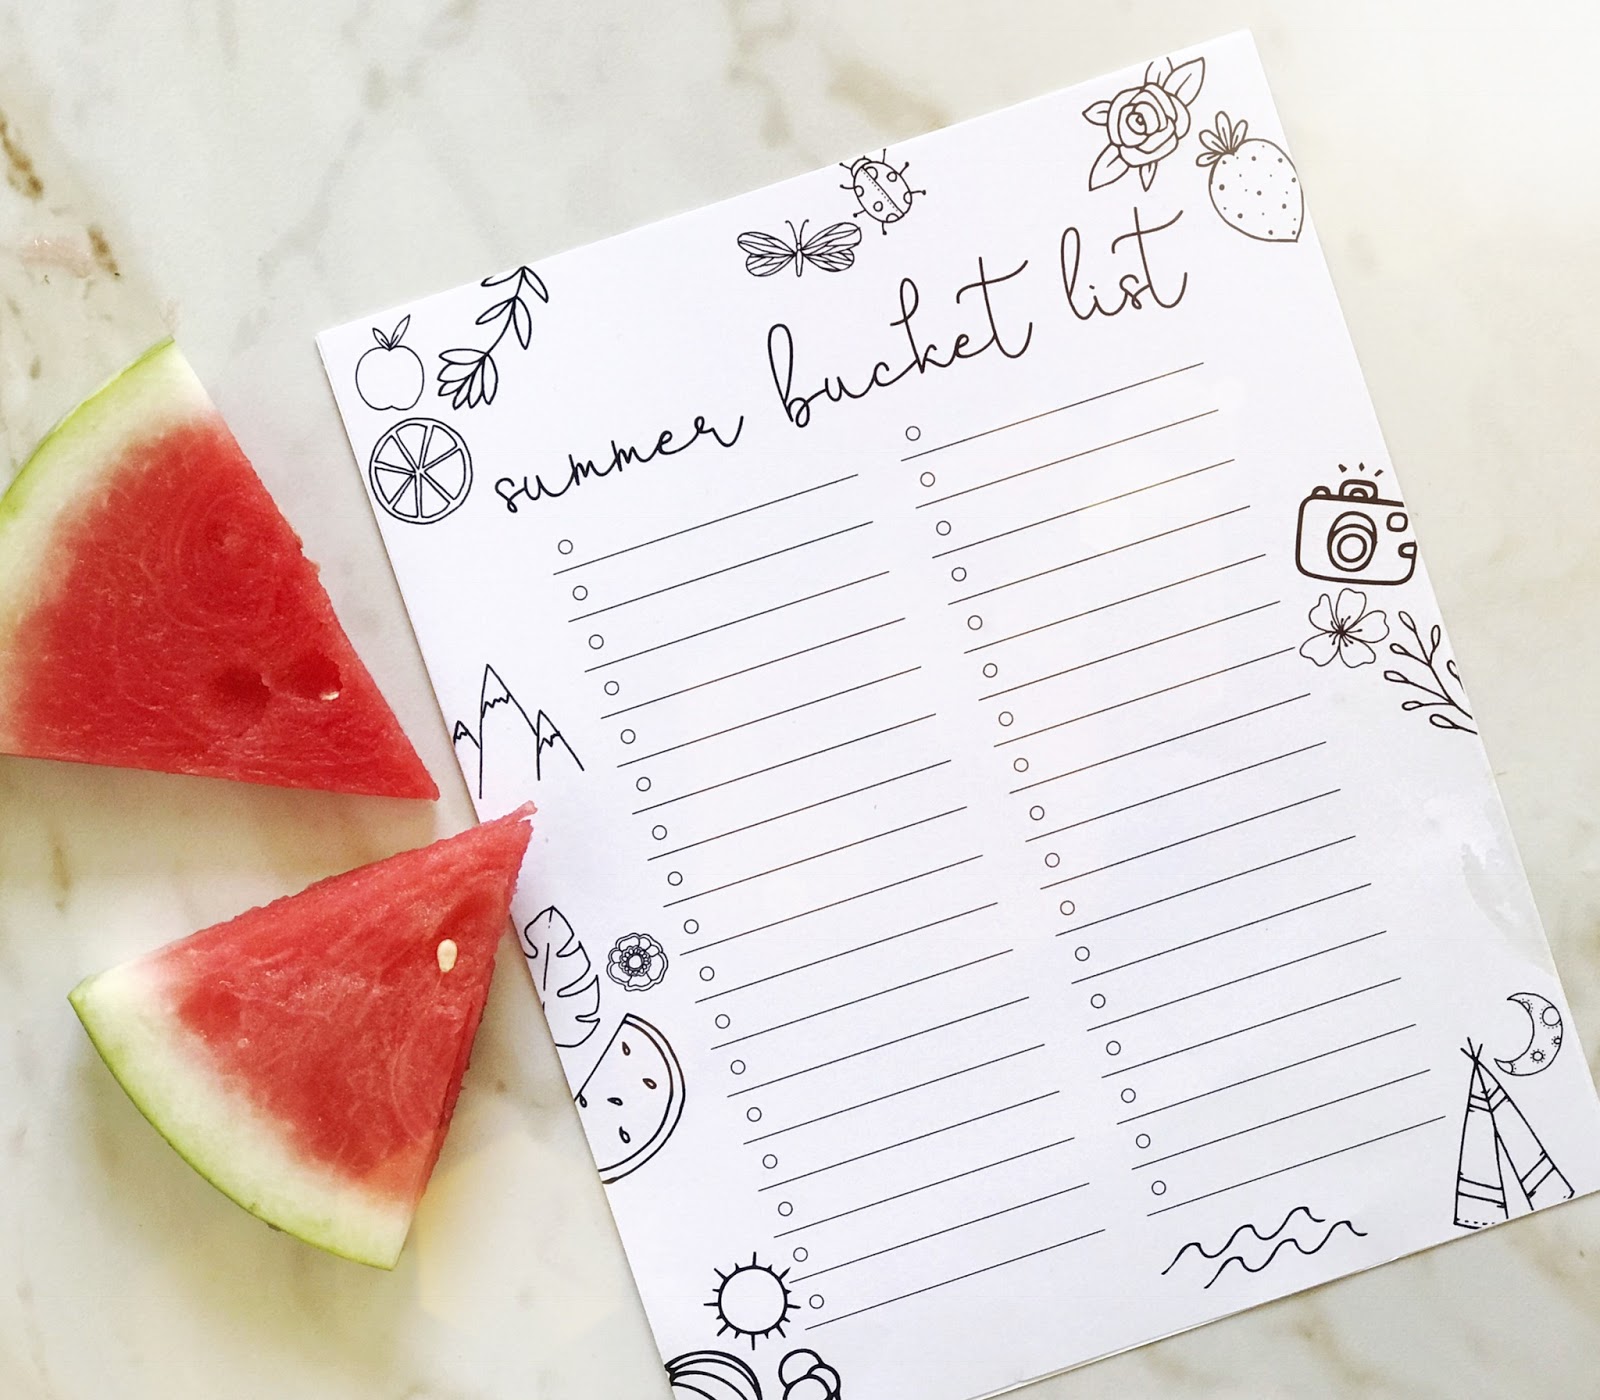 summer bucket list